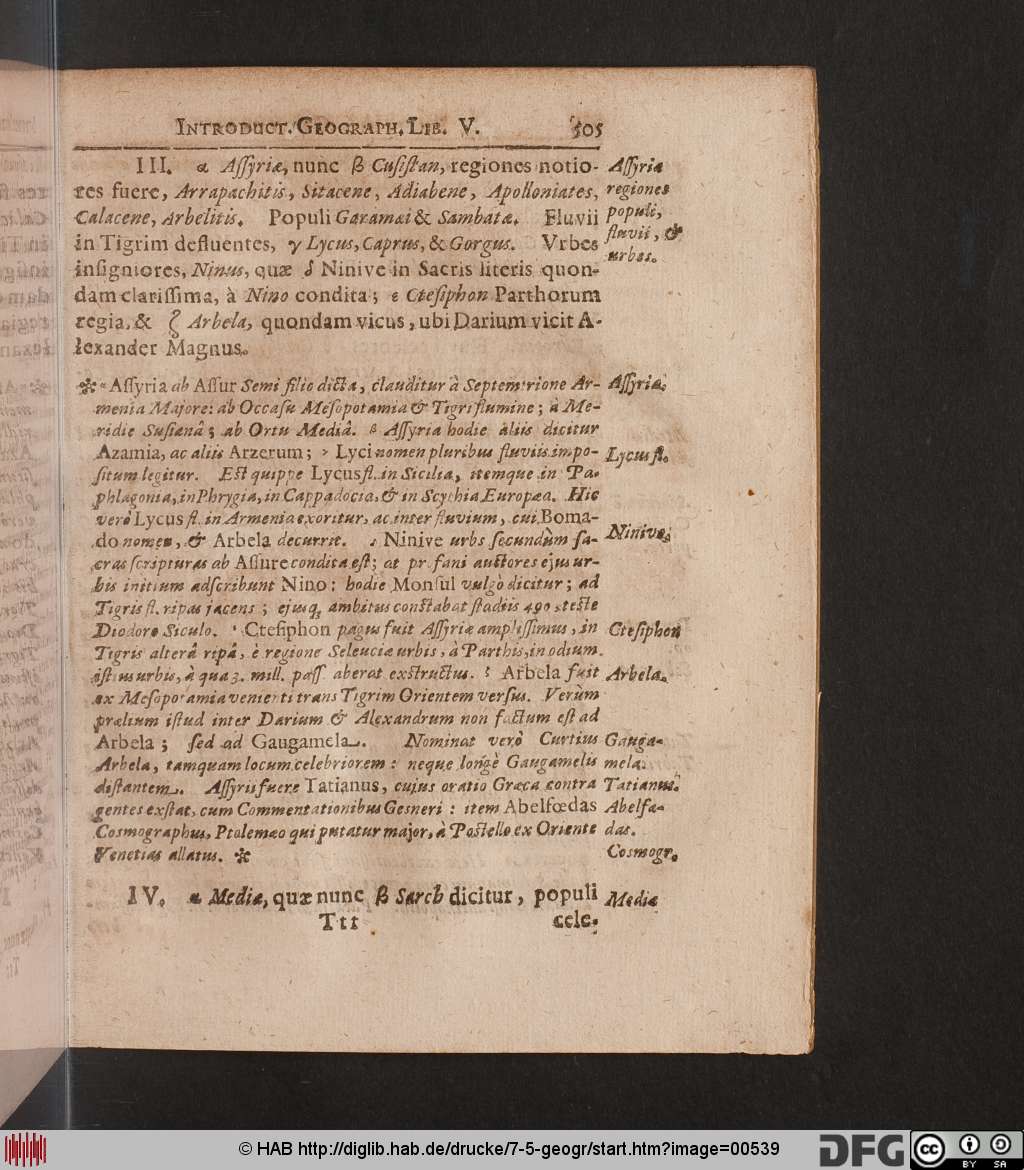 INTRODUCT. GEOGRAPH. LIB. V. 505
III. α Aſſyriæ, nunc β Cuſiſtan, regiones notio-
res fuere, Arrapachitis, Sitacene, Adiabene, Apolloniates,
Calacene, Arbelitis. Populi Garamæi & Sambatæ. Fluvii
in Tigrim defluentes, γ Lycus, Caprus, & Gorgus. Vrbes
inſigniores, Ninus, quæ δ Ninive in Sacris literis quon-
dam clariſſima, à Nino condita; ε Cteſiphon Parthorum
regia, & ζ Arbela, quondam vicus, ubi Darium vicit A-
lexander Magnus.
Aſſyria
regiones
populi,
fluvii, &
urbes.
* α Aſſyria ab Aſſur Semi filio dicta, clauditur à Septemtrione Ar-
menia Majore: ab Occaſu Meſopotamia & Tigri flumine; à Me-
ridie Suſianâ; ab Ortu Mediâ. β Aſſyria hodie aliis dicitur
Azamia, ac aliis Arzerum; γ Lyci nomen pluribus fluviis impo-
ſitum legitur. Eſt quippe Lycus fl. in Sicilia, itemque in Pa-
phlagonia, in Phrygia, in Cappadocia, & in Scythia Europæa. Hic
verò Lycus fl. in Armenia exoritur, ac inter fluvium, cui Boma-
do nomen, & Arbela decurrit. δ Ninive urbs ſecundùm ſa-
cras ſcripturas ab Aſſure condita eſt; at profani auctores ejus ur-
bis initium adſcribunt Nino: hodie Monſul vulgò dicitur; ad
Tigris fl. ripas jacens; ejusq; ambitus conſtabat ſtadiis 490, teſte
Diodoro Siculo. ε Cteſiphon pagus fuit Aſſyriæ ampliſſimus, in
Tigris alterâ ripâ, è regione Seleuciæ urbis, à Parthis, in odium
iſtius urbis, à qua 3. mill. paſſ. aberat exſtructus. ζ Arbela fuit
ex Meſopotamia venienti trans Tigrim Orientem verſus. Verùm
prælium iſtud inter Darium & Alexandrum non factum eſt ad
Arbela; ſed ad Gaugamela. Nominat verò Curtius
Arbela, tamquam locum celebriorem: neque longè Gaugamelis
diſtantem. Aſſyrii fuere Tatianus, cujus oratio Græca contra
gentes exſtat, cum Commentationibus Geſneri: item Abelfœdas
Coſmographus, Ptolemæo qui putatur major, à Poſtello ex Oriente
Venetias allatus. *
Aſſyria.
Lycus fl.
Ninive.
Cteſiphon
Arbela.
Gauga-
mela.
Tatianus.
Abelfæ-
das.
Coſmogr.
IV. α Mediæ, quæ nunc β Sarch dicitur, populi
Mediæ
Ttt cele-
© HAB http://diglib.hab.de/drucke/7-5-geogr/start.htm?image=00539
DFG
cc
BY SA